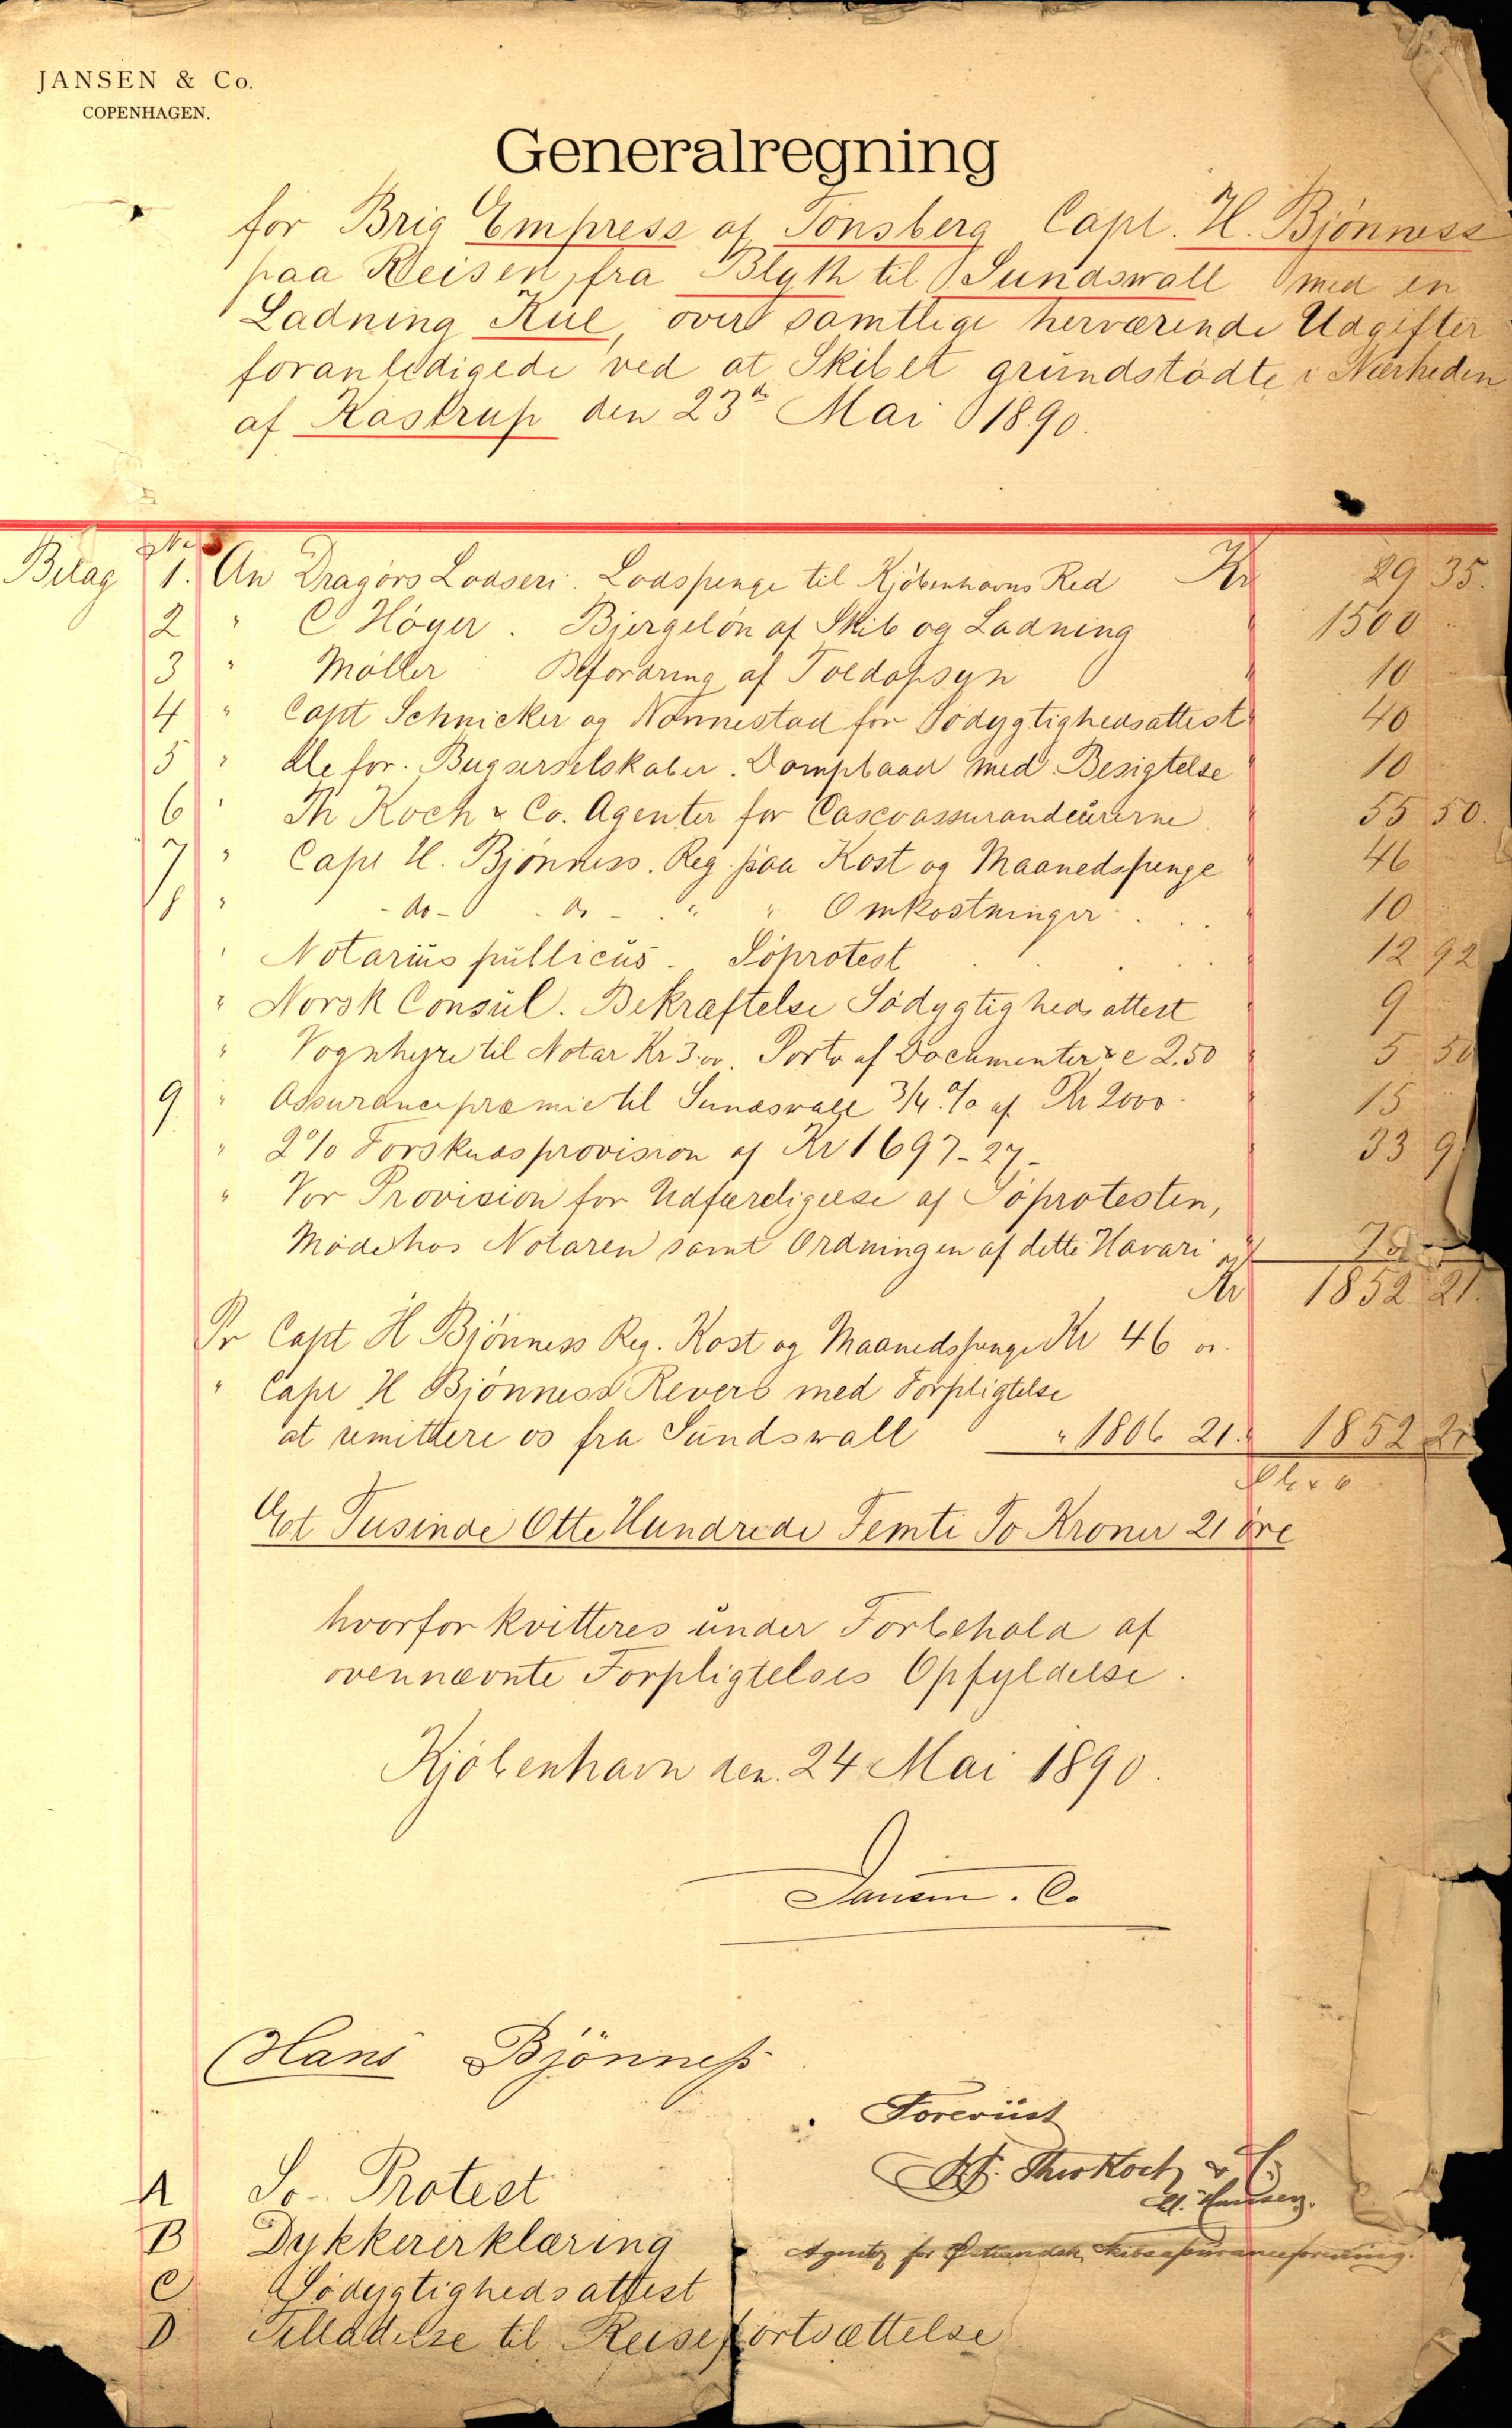 JANSEN & Co.
COPENHAGEN.
Generalregning
for Brig Empress af Tönsberg Capt. H. Bjönness
paa Reisen fra Blyth til Sundswall med en
Ladning Kul, over samtlige herværende Udgifter
foranledigede ved at Skibet grundstødte i Nærheden
af Kastrup den 23de Mai 1890.
Bilag No 1. An Dragörs Lodseri. Lodspenge til Kjöbenhavns Red Kr 29 35.
2 " C Höyer. Bjergelön af Skib og Ladning 1500
3 " Möller Befordring af Toldopsyn 10
4 " Capt Schnicker og Nonnestad for Södygtighedsattest 40
5 " de for. Bugserselskaber. Dampbaad med Besigtelse 10
6 " Th Koch & Co. Agenter for Cascoassurandeurerne 55 50.
7 " Capt H. Bjönness. Reg. paa Kost og Maanedspenge 46
8 " - do - - do - " " Omkostninger 10
" Notarius publicus. Söprotest 12 92
" Norsk Consul. Bekræftelse Södygtighedsattest 9
" Vognhyre til Notar Kr 3.00. Porto af Documenter &c 2.50 5 50
9 " Assurancepræmie til Sundswall 3/4 % af Kr 2000 15
" 2% Forskudsprovision af Kr 1697-27- 33 9
" Vor Provision for Udfærdigelse af Söprotesten,
Möde hos Notaren samt Ordningen af dette Havari 75
Kr 1852 21.
Pr Capt H Bjönness Reg. Kost og Maanedspenge Kr 46 "
" Capt H Bjönness Revers med Forpligtelse
at remittere os fra Sundswall " 1806 21. 1852 21
Et Tusinde Otte Hundrede Femti To Kroner 21 öre
hvorfor kvitteres under Forbehold af
ovennævnte Forpligtelses Opfyldelse.
Kjöbenhavn den. 24 Mai 1890.
Jansen . Co
Hans Bjönness
Forevist
Theo Koch & C
Hansen.
Agenter for Skibsassuranceforening.
A Sö-Protest
B Dykkererklæring
C Södygtighedsattest
D Tilladelse til Reisefortsættelse